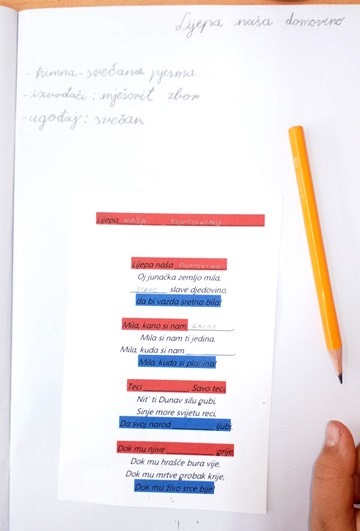 Lijepa naša domovino
- himna - svečana pjesma
- izvođači: mješovit zbor
- ugođaj: svečan
Lijepa naša domovino
Lijepa naša domovino,
Oj junačka zemljo mila,
stare slave djedovino,
da bi vazda sretna bila!
Mila, kano si nam slavna,
Mila si nam ti jedina,
Mila, kuda si nam ________,
Mila, kuda si planina!
Teci ________, Savo teci,
Nit' ti Dunav silu gubi,
Sinje more svijetu reci,
Da svoj narod ________ ljubi
Dok mu njive ________ grije,
Dok mu hrašće bura vije,
Dok mu mrtve grobak krije,
Dok mu živo srce bije!